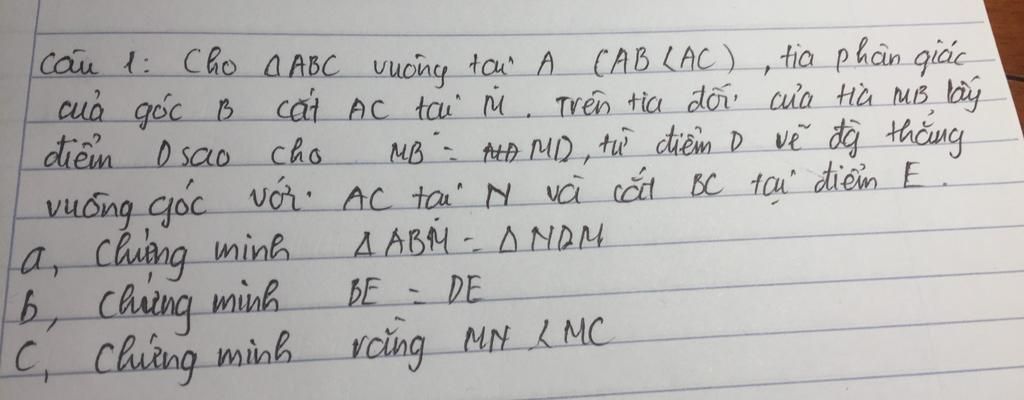 Câu 1: Cho ΔABC vuông tại A (AB<AC), tia phân giác
của góc B cắt AC tại M. Trên tia đối của tia MB lấy
điểm D sao cho MB = MD, từ điểm D vẽ đg thẳng
vuông góc với AC tại N và cắt BC tại điểm E.
a, Chứng minh ΔABM = ΔNDM
b, Chứng minh BE = DE
C, Chứng minh rằng MN < MC